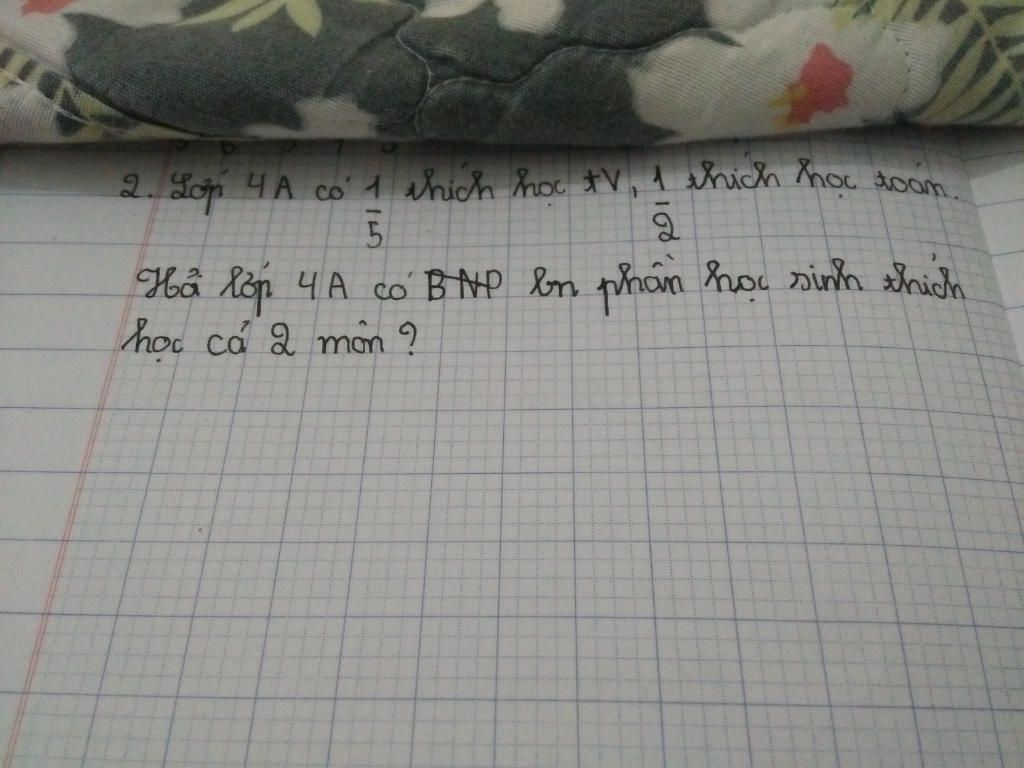 2. Lớp 4A có 1/5 thích học TV, 1/2 thích học toán.
Hỏi lớp 4A có BNP ln phần học sinh thích
học cả 2 môn?